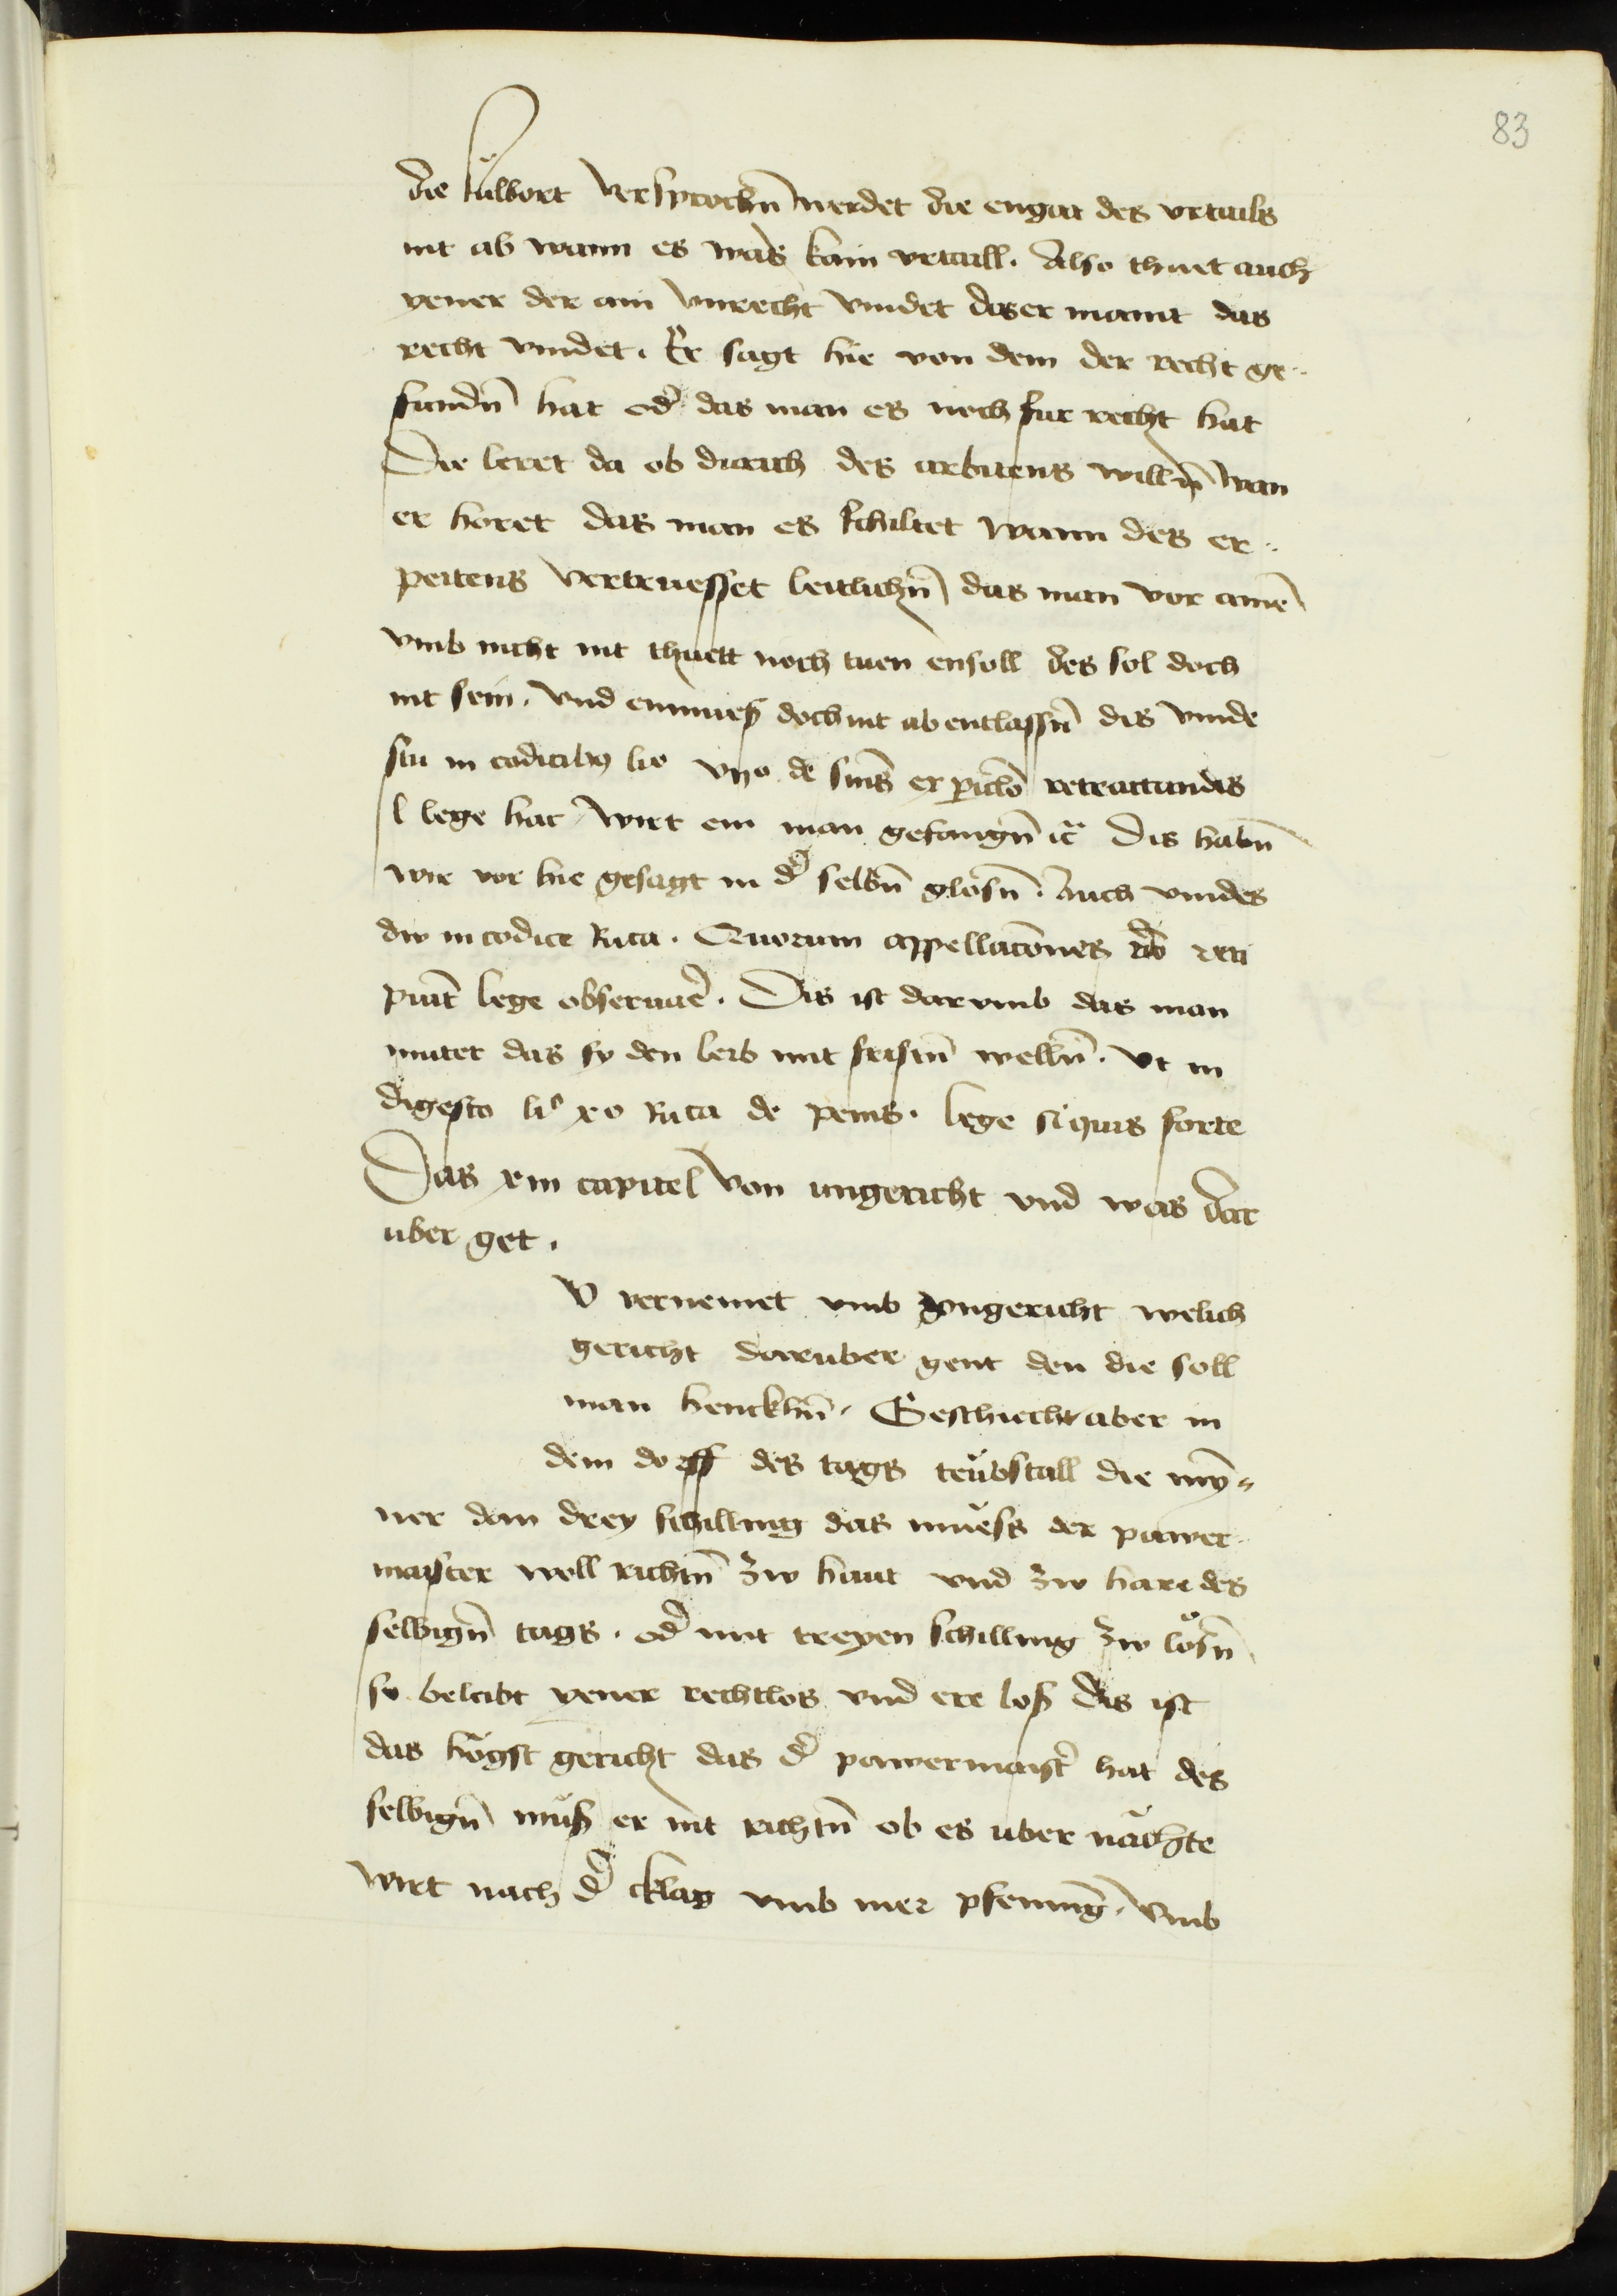 83
die fülbort versprochn̄ werdet die engat des vrtails
nit ab wann es was kain vrtaill. Also thuet auch
yener der ain vnrecht vindet das er maint das
recht vindet. Er sagt hie von dem der recht ge-
fundn̄ hat od̄ das man es noch fur recht hat
Die leret da ob durch des arbaitens willn̄ wan
er horet das man es schiltet wann des er-
peitens vertruesset leitlichn̄ das man vor ainē
vmb nicht nit thuett noch tuen ensoll des sol doch
nit sein. Vnd enmueß doch nit ab entlassn̄ dis vinde
stu in codicibus lio vijo de sn̄is ex pic̄lo retractandis
l lege hac Wirt ein man gefangn̄ ic̄ Dis habn̄
wir vor hie gesagt in d̄ selbn̄ glosn̄. Auch vindes
dw in codice Rica. Quorum appellacōnes no reci
piūt lege obseruarē. Dis ist darumb das man
mutet das sy den leib mit fristn̄ welln̄. Vt in
digesto lio xo Rica de penis. lege siquis forte
Das xiii capitel von ungericht vnd was dar
uber get.
V vernemet vmb vngericht welich
gericht daruber gent den die soll
man henckhn̄. Geschiecht aber in
dem dorff des tags teübstall die myn̄-
ner dan drey schilling das muess der pawer
maister woll richtn̄ zw haut vnd zw hare des
selbign̄ tags. od̄ mit treyen schilling zw lösn̄
so beleibt yener rechtlos vnd ere loß dis ist
das högst gericht das d̄ pawermaistr̄ hat des
selbign̄ müß er nit richtn̄ ob es uber nächte
wirt nach d̄ cklag vmb mer pfenninḡ. Vmb